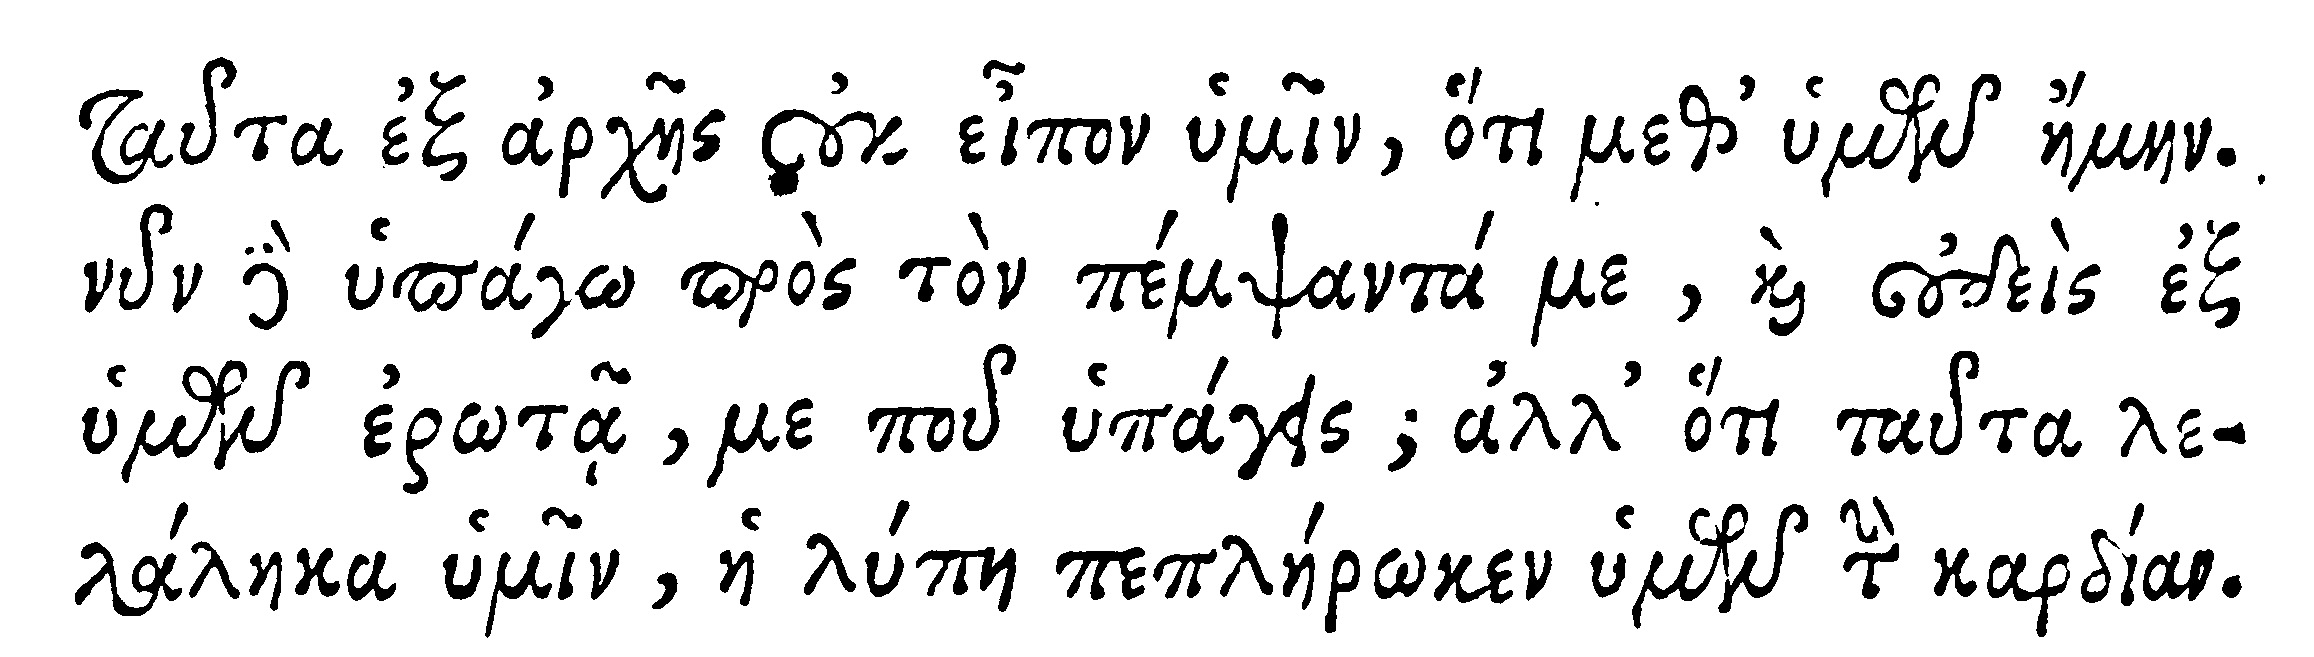 Ταῦτα ἐξ ἀρχῆς οὐκ εἶπον ὑμῖν, ὅτι μεθ' ὑμῶν ἤμην.
νῦν δὲ ὑπάγω πρὸς τὸν πέμψαντά με, καὶ οὐδεὶς ἐξ
ὑμῶν ἐρωτᾷ, με ποῦ ὑπάγεις; ἀλλ' ὅτι ταῦτα λε-
λάληκα ὑμῖν, ἡ λύπη πεπλήρωκεν ὑμῶν τὴν καρδίαν.